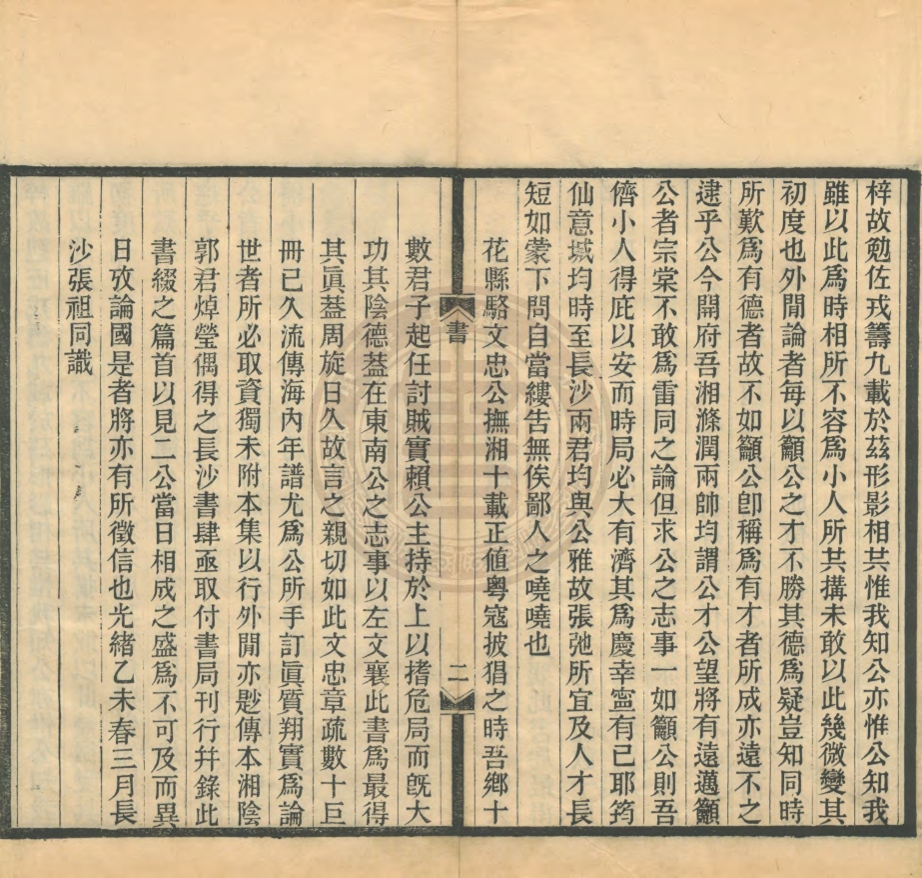 梓故勉佐戎籌九載於茲形影相共惟我知公亦惟公知我
雖以此爲時相所不容爲小人所共搆未敢以此幾微變其
初度也外閒論者每以籲公之才不勝其德爲疑豈知同時
所歎爲有德者故不如籲公卽稱爲有才者所成亦遠不之
逮乎公今開府吾湘滌潤兩帥均謂公才公望將有遠邁籲
公者宗棠不敢爲雷同之論但求公之志事一如籲公則吾
儕小人得庇以安而時局必大有濟其爲慶幸寧有已耶筠
仙意城均時至長沙兩君均與公雅故張弛所宜及人才長
短如蒙下問自當縷吿無俟鄙人之嘵嘵也
花縣駱文忠公撫湘十載正値粤寇披猖之時吾鄉十
書
二
數君子起任討賊實賴公主持於上以搘危局而旣大
功其陰德葢在東南公之志事以左文襄此書爲最得
其眞葢周旋日久故言之親切如此文忠章疏數十巨
冊已久流傳海內年譜尤爲公所手訂眞質翔實爲論
世者所必取資獨未附本集以行外閒亦尟傳本湘陰
郭君焯瑩偶得之長沙書肆亟取付書局刊行幷錄此
書綴之篇首以見二公當日相成之盛爲不可及而異
日攷論國是者將亦有所徵信也光緒乙未春三月長
沙張祖同識